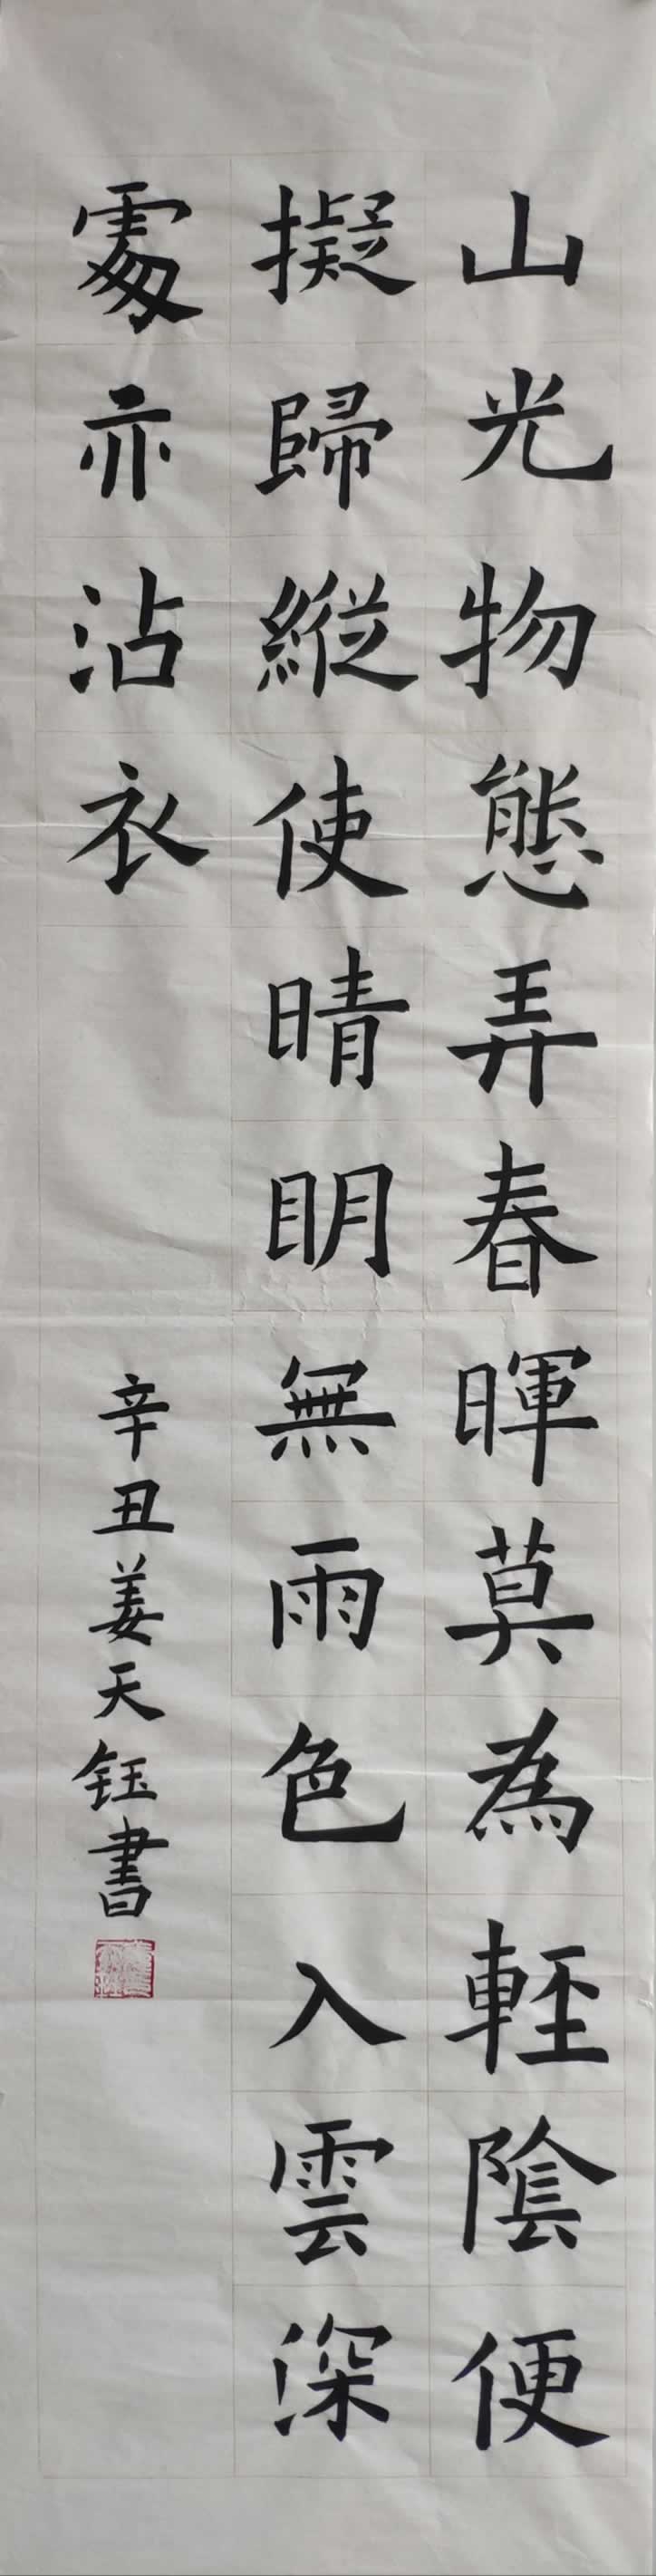 山光物態弄春暉莫為輕陰便
擬歸縱使晴明無雨色入雲深
處亦沾衣
辛丑姜天钰書